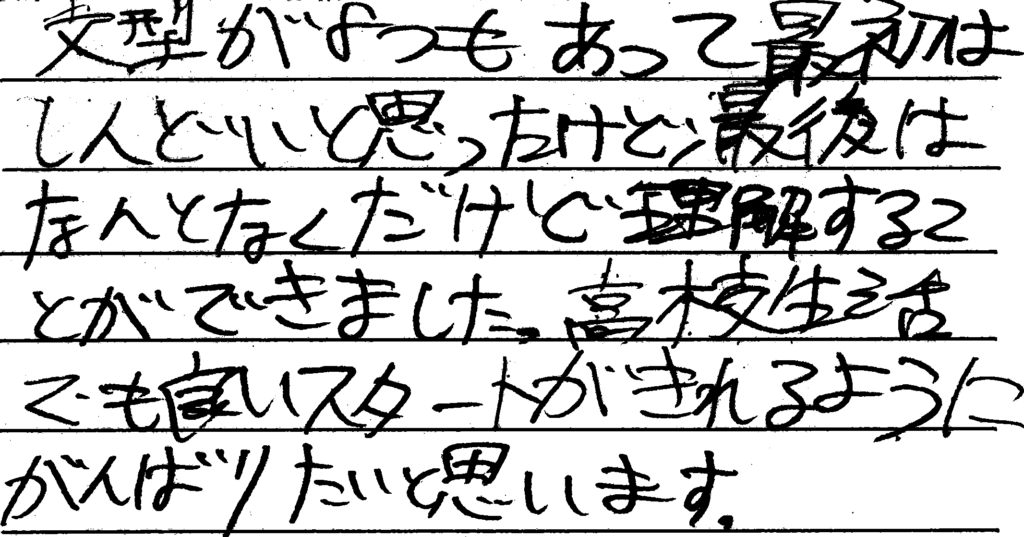 文型がよつもあって最初は
しんどいと思ったけど、最後は
なんとなくだけど理解するこ
とができました。高校生活
でも良いスタートがきれるように
がんばりたいと思います。